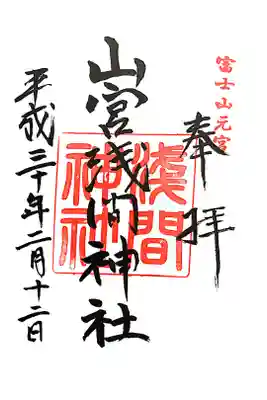 富士山元宮
奉拝
山宮浅間神社
浅間神社
平成三十年二月十二日